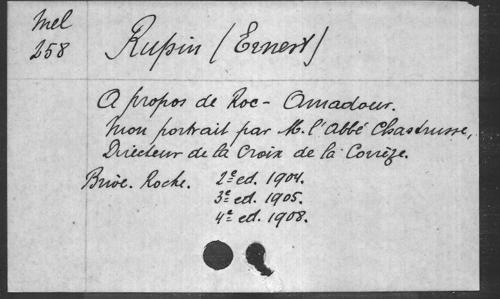 Mel
258
Rupin (Ernest)
A propos de Roc-Amadour.
Mon portrait par M. l'abbé Chastrusse,
Directeur de la Croix de la Corrèze.
Brive. Roche. 2e ed. 1904.
3e ed. 1905.
4e ed. 1908.